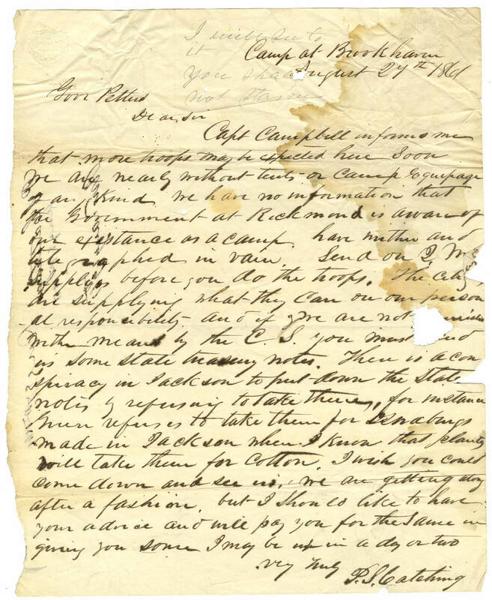 I
it
you shall
not
Camp at Brookhaven
August 27th 1861
Govr Pettus
Dear Sir
Capt Campbell informs me
that more troops may be expected here soon
We are nearly without tents or Camp Equipage
of any kind we have no information that
the Government at Richmond is aware of
our existance as a camp have written and
telegraphed in vain. Send on
supplies before you do the troops. The
are supplying what they can on our person
al responsibility and if we are not
with means by the C. S. you must send
us some state treasury notes. There is a con
spiracy in Jackson to put down the State
notes by refusing to take them, for instance
Green refuses to take them for Osnaburgs
made in Jackson when I know that planters
will take them for Cotton. I wish you could
come down and see us, we are getting along
after a fashion. but I should like to have
your advice and will pay you for the same in
giving you some I may be up in a day or two
very truly
P. S. Catching